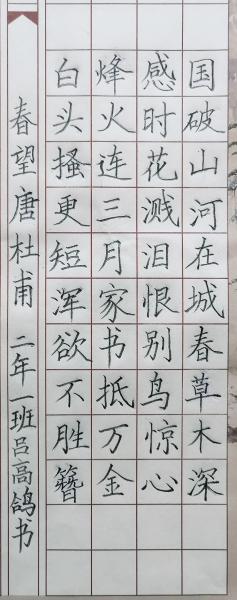 国破山河在城春草木深
感时花溅泪恨别鸟惊心
烽火连三月家书抵万金
白头搔更短浑欲不胜簪
春望唐杜甫 二年一班吕高鸽书